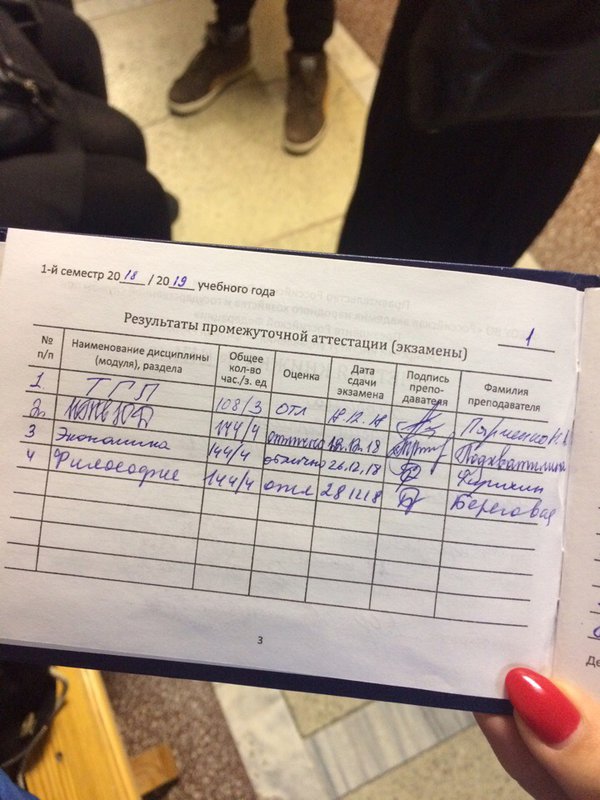 1-й семестр 2018 / 2019 учебного года
Результаты промежуточной аттестации (экзамены) 1
№ п/п Наименование дисциплины (модуля), раздела Общее кол-во час./з. ед Оценка Дата сдачи экзамена Подпись препо-давателя Фамилия преподавателя
1 ТГП 108/3 отл 18.12.18
2. 144/4 отлично 19.12.18
3 Экономика 144/4 отлично 26.12.18
4 Философия 144/4 отл 281218 Береговая
3
Де